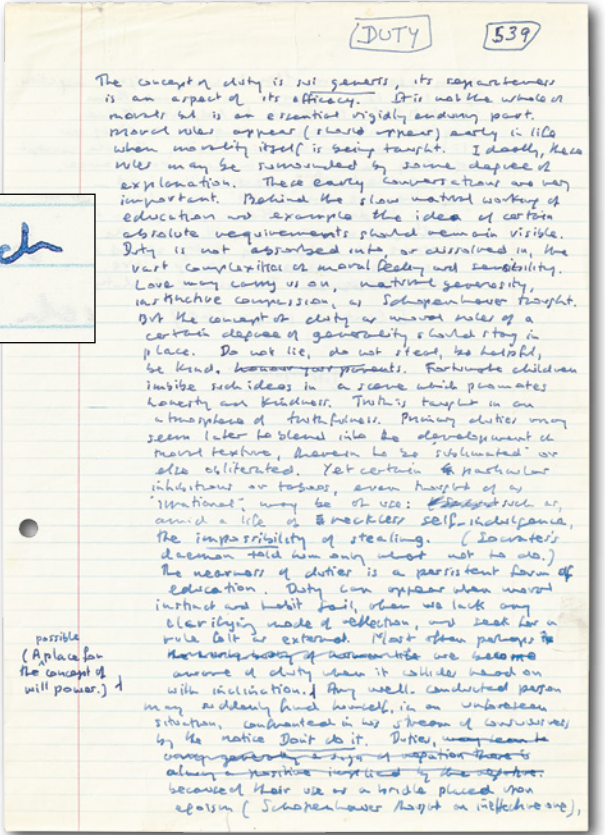 DUTY
539
The concept of duty is sui generis, its separateness
is an aspect of its efficacy. It is not the whole of
morals but is an essential rigidly enduring part.
Moral rules appear (should appear) early in life
when morality itself is being taught. Ideally, these
rules may be surrounded by some degree of
explanation. These early conversations are very
important. Behind the slow natural working of
education and example the idea of certain
absolute requirements should remain visible.
Duty is not absorbed into, or dissolved in, the
vast complexities of moral feeling and sensibility.
Love may carry us on, natural generosity,
instinctive compassion, as Schopenhauer thought.
But the concept of duty as moral rules of a
certain degree of generality should stay in
place. Do not lie, do not steal, be helpful,
be kind. honour your parents. Fortunate children
imbibe such ideas in a scene which promotes
honesty and kindness. Truth is taught in an
atmosphere of truthfulness. Primary duties may
seem later to blend into the development of
moral texture, therein to be 'sublimated' or
else obliterated. Yet certain particular
inhibitions or taboos, even thought of as
'irrational', may be of use: such as,
amid a life of reckless self-indulgence,
the impossibility of stealing. (Socrates's
daemon told him only what not to do.)
The nearness of duties is a persistent form of
education. Duty can appear when moral
instinct and habit fail, when we lack any
clarifying mode of reflection, and seek for a
rule felt as external. Most often perhaps
we become
aware of duty when it collides head on
with inclination. Any well-conducted person
may suddenly find himself, in an unforeseen
situation, confronted in his stream of consciousness
by the notice Don't do it. Duties, may seem to
negation there is
always a positive implied by the negative.
because of their use as a bridle placed upon
egoism (Schopenhauer thought an ineffective one),
possible
(A place for
the concept of
will power.)